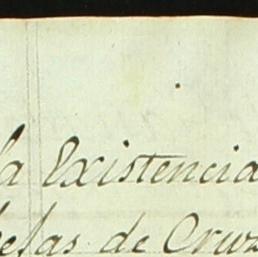 la Existencia
de Cruz